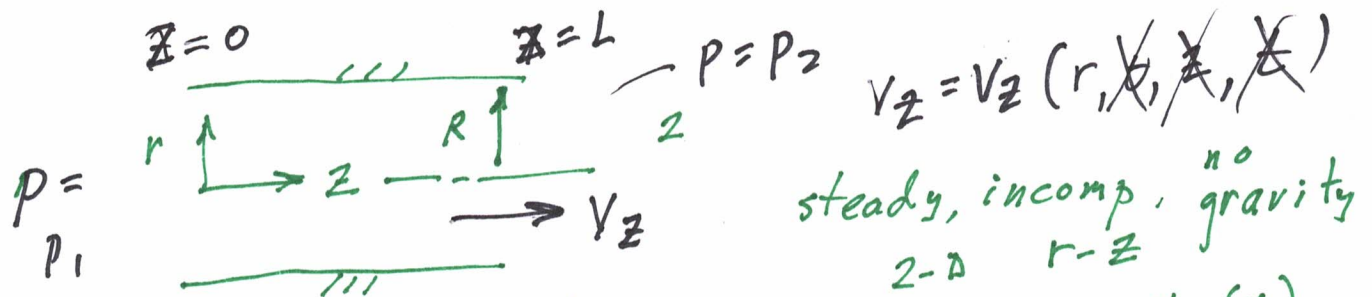 Z = 0
Z = L
P = P2
Vz = Vz (r, θ, Z, t)
r
R
2
P =
P1
Z
Vz
steady, incomp. no gravity
2-D r-Z